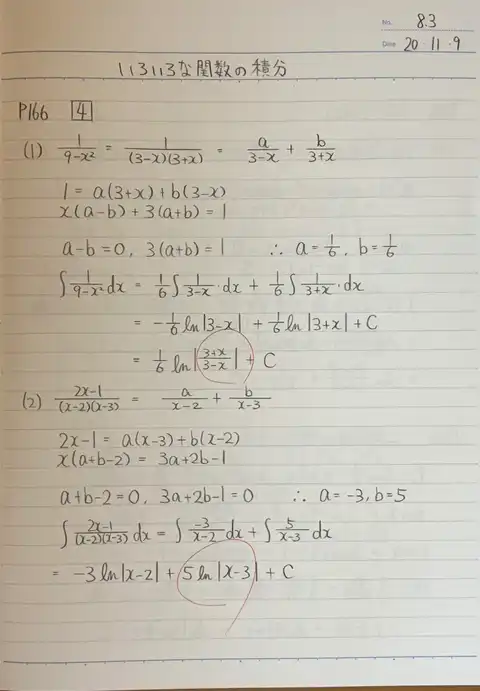 No. 8.3
Date 20 11・9
いろいろな関数の積分
P166 [4]
(1) 1/(9-x²) = 1/((3-x)(3+x)) = a/(3-x) + b/(3+x)
1 = a(3+x) + b(3-x)
x(a-b) + 3(a+b) = 1
a-b=0, 3(a+b) = 1 ∴ a = 1/6, b = 1/6
∫ 1/(9-x²) dx = 1/6 ∫ 1/(3-x) ・dx + 1/6 ∫ 1/(3+x) ・dx
= -1/6 ln|3-x| + 1/6 ln|3+x| + C
= 1/6 ln|(3+x)/(3-x)| + C
(2) (2x-1)/((x-2)(x-3)) = a/(x-2) + b/(x-3)
2x-1 = a(x-3) + b(x-2)
x(a+b-2) = 3a+2b-1
a+b-2=0, 3a+2b-1=0 ∴ a=-3, b=5
∫ (2x-1)/((x-2)(x-3)) dx = ∫ -3/(x-2) dx + ∫ 5/(x-3) dx
= -3 ln|x-2| + 5 ln|x-3| + C